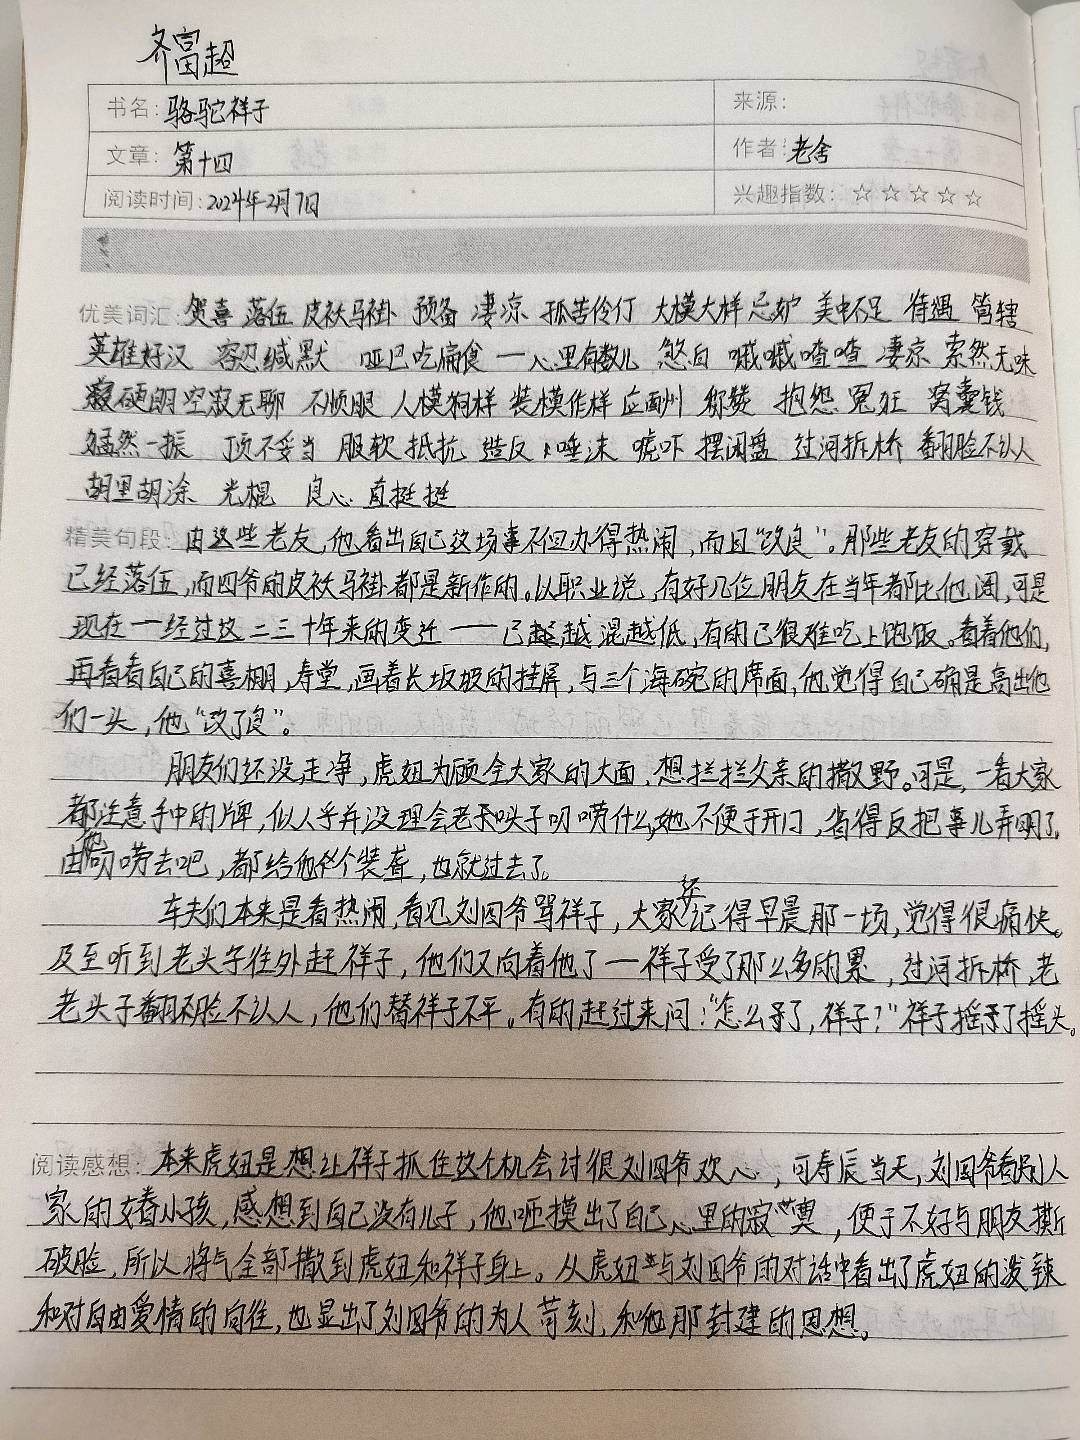 齐富超
书名：骆驼祥子
来源：
文章：第十四
作者：老舍
阅读时间：2024年2月7日
兴趣指数：☆☆☆☆☆
优美词汇：贺喜 落伍 皮袄马褂 预备 凄凉 孤苦伶仃 大模大样 忌妒 美中不足 待遇 管辖
英雄好汉 容忍缄默 哑巴吃扁食一心里有数儿 煞白 嘁嘁喳喳 凄凉 索然无味
硬朗 空寂无聊 不顺眼 人模狗样 装模作样 应酬 称赞 抱怨 冤枉 窝囊钱
猛然一振 顶不妥当 服软 抵抗 造反 唾沫 唬吓 摆闲盘 过河拆桥 翻脸不认人
胡里胡涂 光棍 良心 直挺挺
精美句段：由这些老友，他看出自己这场事不但办得热闹，而且“改良”。那些老友的穿戴
已经落伍，而四爷的皮袄马褂都是新作的。以职业说，有好几位朋友在当年都比他阔，可是
现在——经过这二三十年来的变迁——已越混越低，有的已很难吃上饱饭。看着他们，
再看看自己的喜棚，寿堂，画着长坂坡的挂屏，与三个海碗的席面，他觉得自己确是高出他
们一头，他“改了良”。
朋友们还没走净，虎妞为顾全大家的大面，想拦拦父亲的撒野。可是，一看大家
都注意手中的牌，似乎并没理会老头子叨唠什么，她不便于开口，省得反把事儿弄明了。
由他叨唠去吧，都给他个装聋，也就过去了。
车夫们本来是看热闹，看见刘四爷骂祥子，大家还记得早晨那一场，觉得很痛快。
及至听到老头子往外赶祥子，他们又向着他了——祥子受了那么多的累，过河拆桥，老
老头子翻脸不认人，他们替祥子不平。有的赶过来问：“怎么了，祥子？”祥子摇了摇头。
阅读感想：本来虎妞是想让祥子抓住这个机会讨很刘四爷欢心，可寿辰当天，刘四爷看别人
家的女眷小孩，感想到自己没有儿子，他咂摸出了自己心里的寂寞，便于不好与朋友撕
破脸，所以将气全部撒到虎妞和祥子身上。从虎妞与刘四爷的对话中看出了虎妞的泼辣
和对自由爱情的向往，也显出了刘四爷的为人苛刻，和他那封建的思想。